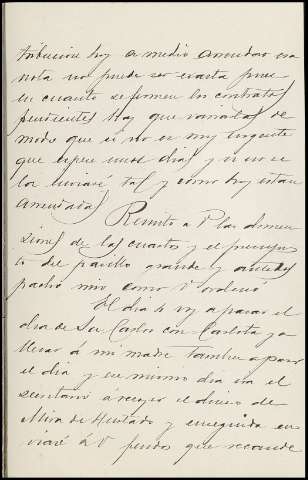 tribucion hoy a medio amueblar esa
nota no puede ser exacta pues
en cuanto se firmen los contratos
pendientes hay que variarlas de
modo que si no es muy urgente
que espere unos dias y si no se
las enviaré tal y como hoy estan
amuebladas Remito a V las dimen
siones de los cuartos y el presupues
to del pasillo grande y
patio mio como V ordenó
El dia 4 voy a pasar el
dia de Sn Carlos con Carlota y a
llevar á mi madre tambien a pasar
el dia y ese mismo dia irá el
secretario á recoger el dinero de
Mira de Hurtado y enseguida en
viaré á V fondos que recaude